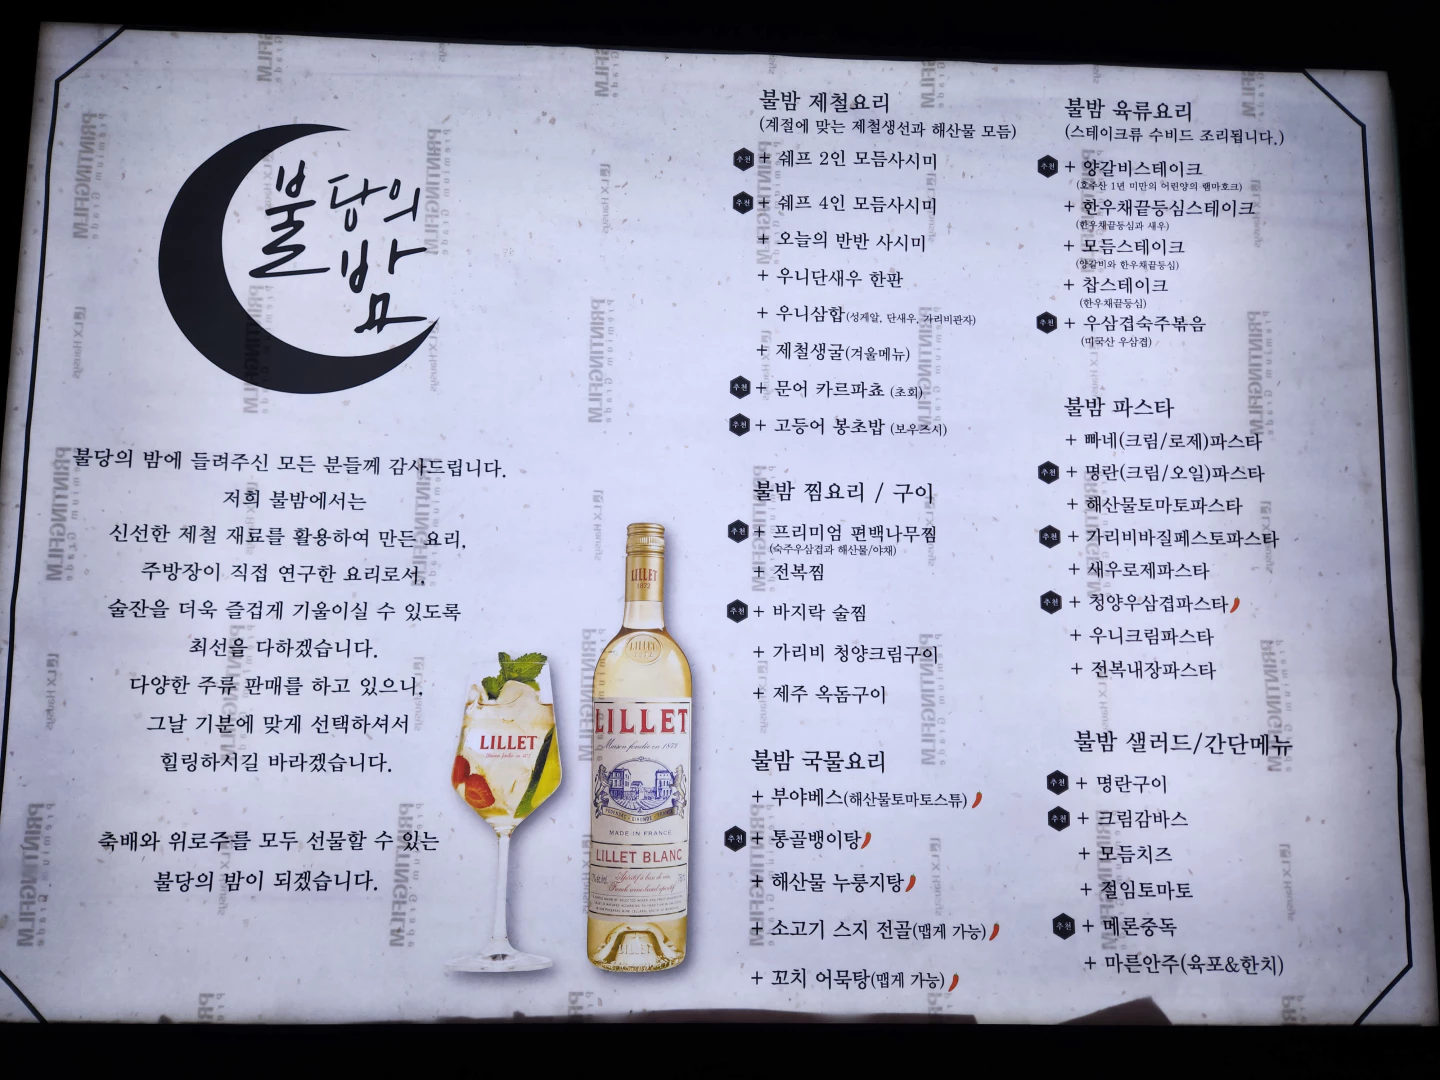 불당의
밤
불당의 밤에 들려주신 모든 분들께 감사드립니다.
저희 불밤에서는
신선한 제철 재료를 활용하여 만든 요리,
주방장이 직접 연구한 요리로서,
술잔을 더욱 즐겁게 기울이실 수 있도록
최선을 다하겠습니다.
다양한 주류 판매를 하고 있으니,
그날 기분에 맞게 선택하셔서
힐링하시길 바라겠습니다.
축배와 위로주를 모두 선물할 수 있는
불당의 밤이 되겠습니다.
LILLET
LILLET
1872
LILLET
Maison fondée en 1872
MADE IN FRANCE
LILLET BLANC
불밤 제철요리
(계절에 맞는 제철생선과 해산물 모듬)
추천 + 쉐프 2인 모듬사시미
추천 + 쉐프 4인 모듬사시미
+ 오늘의 반반 사시미
+ 우니단새우 한판
+ 우니삼합(성게알, 단새우, 가리비관자)
+ 제철생굴(겨울메뉴)
추천 + 문어 카르파쵸 (초회)
추천 + 고등어 봉초밥 (보우즈시)
불밤 찜요리 / 구이
추천 + 프리미엄 편백나무찜
(숙주우삼겹과 해산물/야채)
+ 전복찜
추천 + 바지락 술찜
+ 가리비 청양크림구이
+ 제주 옥돔구이
불밤 국물요리
+ 부야베스(해산물토마토스튜)
추천 + 통골뱅이탕
+ 해산물 누룽지탕
+ 소고기 스지 전골(맵게 가능)
+ 꼬치 어묵탕(맵게 가능)
불밤 육류요리
(스테이크류 수비드 조리됩니다.)
추천 + 양갈비스테이크
(호주산 1년 미만의 어린양의 램마호크)
+ 한우채끝등심스테이크
(한우채끝등심과 새우)
+ 모듬스테이크
(양갈비와 한우채끝등심)
+ 찹스테이크
(한우채끝등심)
추천 + 우삼겹숙주볶음
(미국산 우삼겹)
불밤 파스타
+ 빠네(크림/로제)파스타
추천 + 명란(크림/오일)파스타
+ 해산물토마토파스타
추천 + 가리비바질페스토파스타
+ 새우로제파스타
추천 + 청양우삼겹파스타
+ 우니크림파스타
+ 전복내장파스타
불밤 샐러드/간단메뉴
추천 + 명란구이
추천 + 크림감바스
+ 모듬치즈
+ 절임토마토
추천 + 메론중독
+ 마른안주(육포&한치)